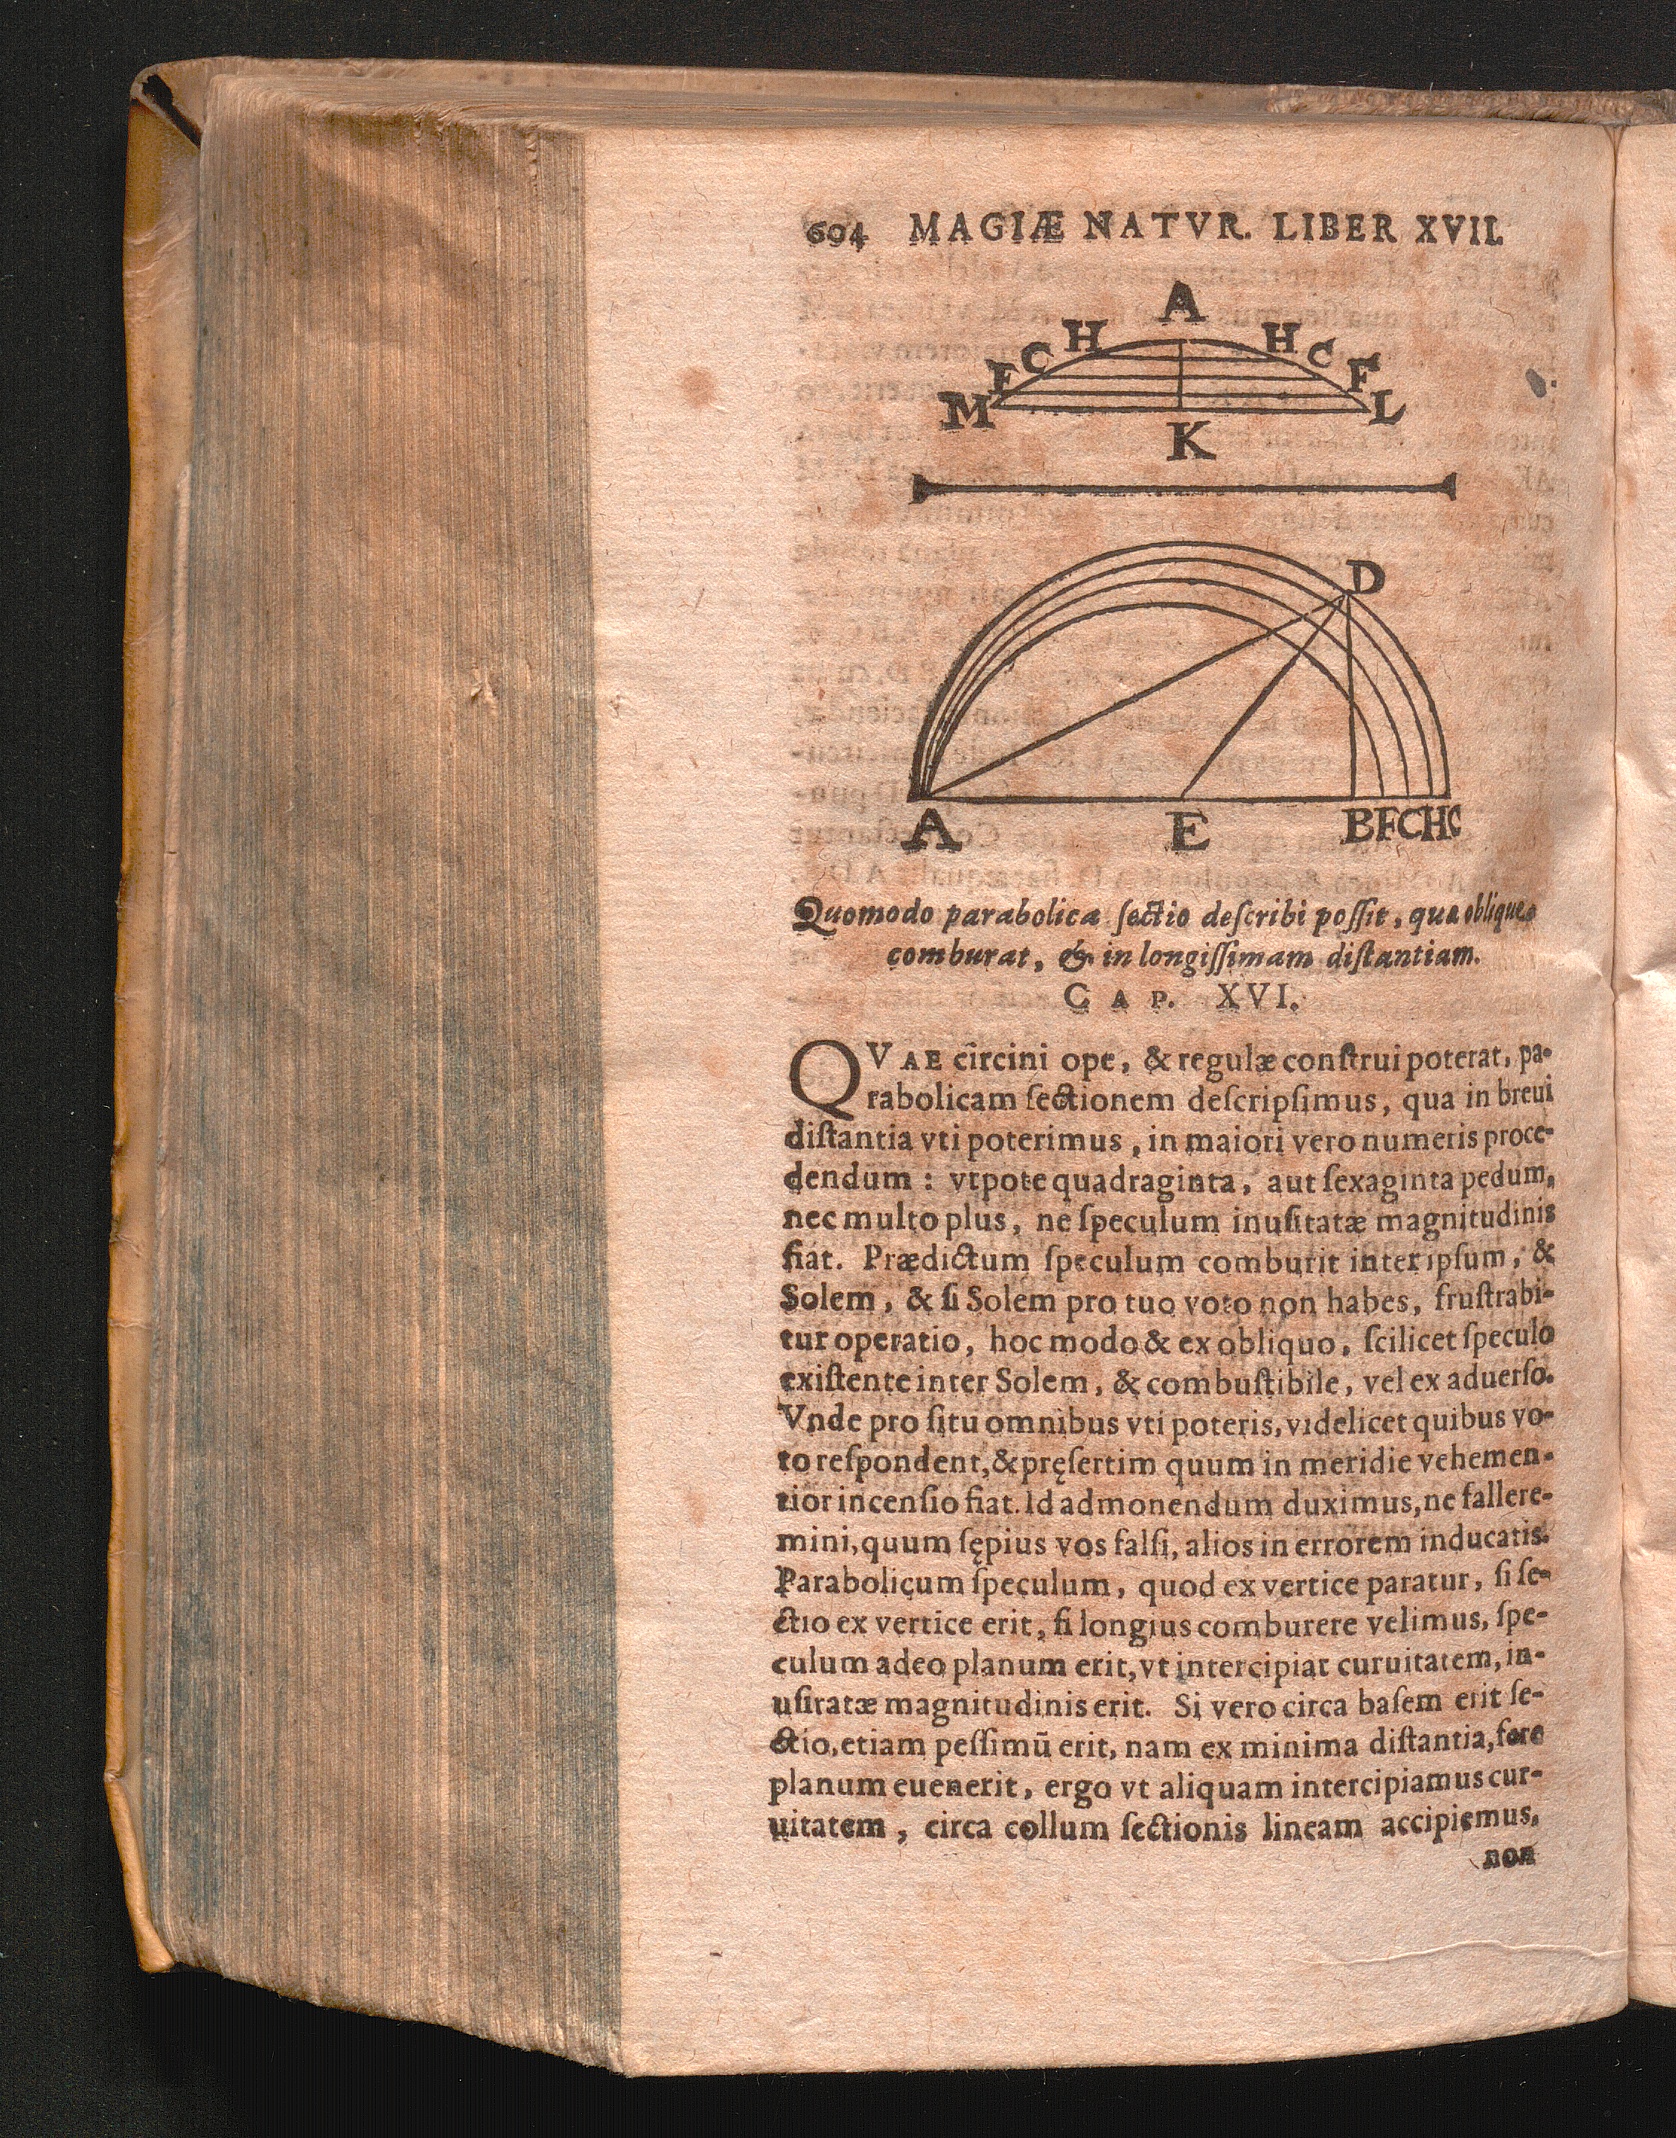 604 MAGIÆ NATVR. LIBER XVII.
A
H H
C C
F F
M L
K
D
A E B F C H G
Quomodo parabolica ſectio deſcribi poſſit, quæ oblique
comburat, & in longiſſimam diſtantiam.
CAP. XVI.
QVAE circini ope, & regulæ conſtrui poterat, pa-
rabolicam ſectionem deſcripſimus, qua in breui
diſtantia vti poterimus, in maiori vero numeris proce-
dendum: vtpote quadraginta, aut ſexaginta pedum,
nec multo plus, ne ſpeculum inuſitatæ magnitudinis
fiat. Prædictum ſpeculum comburit inter ipſum, &
Solem, & ſi Solem pro tuo voto non habes, fruſtrabi-
tur operatio, hoc modo & ex obliquo, ſcilicet ſpeculo
exiſtente inter Solem, & combuſtibile, vel ex aduerſo.
Vnde pro ſitu omnibus vti poteris, videlicet quibus vo-
to reſpondent, & pręſertim quum in meridie vehemen-
tior incenſio fiat. Id admonendum duximus, ne fallere-
mini, quum ſępius vos falſi, alios in errorem inducatis.
Parabolicum ſpeculum, quod ex vertice paratur, ſi ſe-
ctio ex vertice erit, ſi longius comburere velimus, ſpe-
culum adeo planum erit, vt intercipiat curuitatem, in-
uſitatæ magnitudinis erit. Si vero circa baſem erit ſe-
ctio, etiam peſſimū erit, nam ex minima diſtantia, fere
planum euenerit, ergo vt aliquam intercipiamus cur-
uitatem, circa collum ſectionis lineam accipiemus,
non